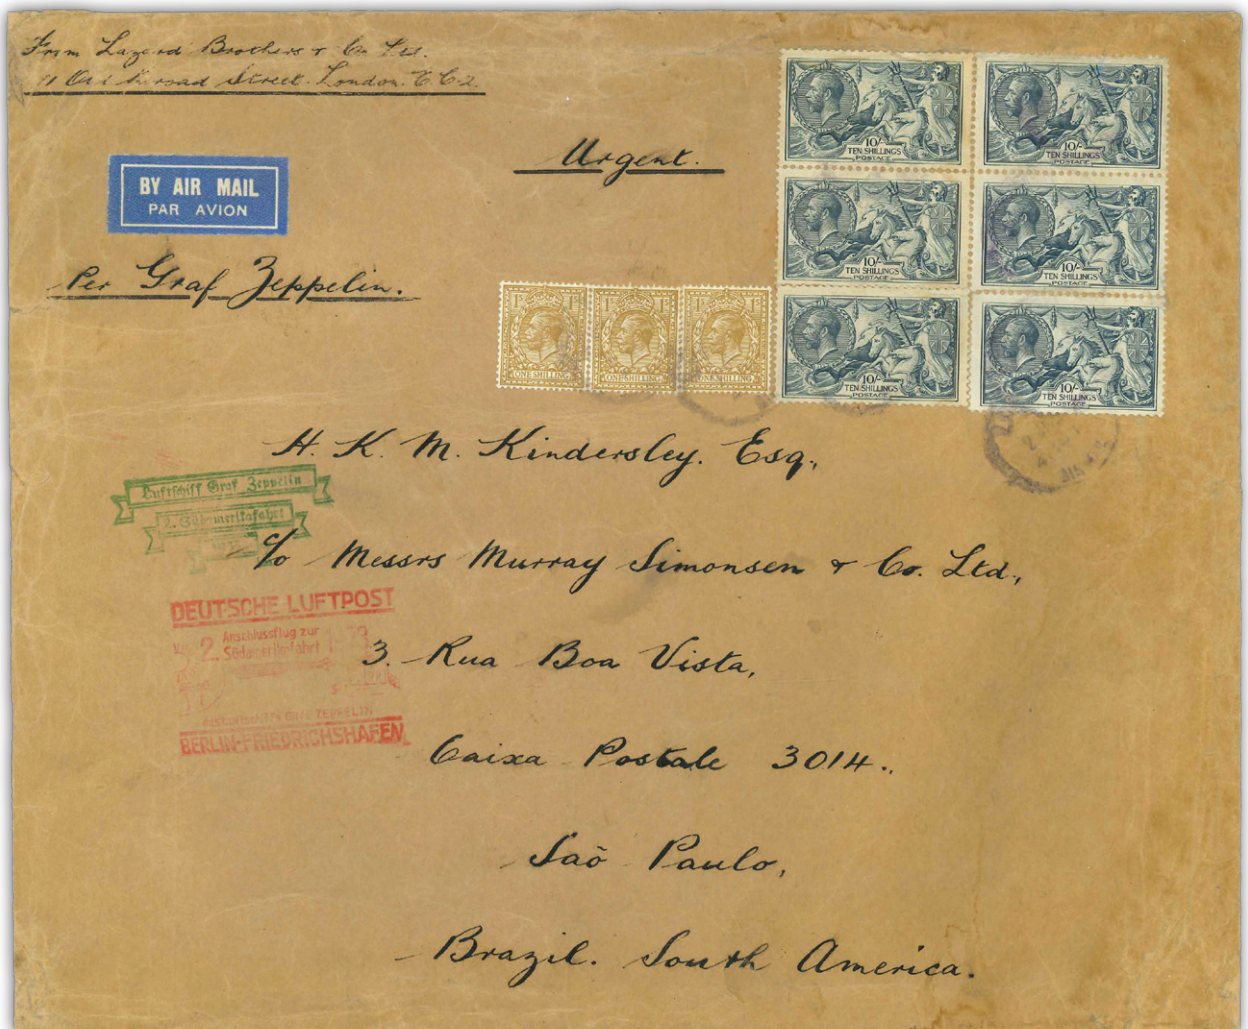 From Lazard Brothers & Co. Ltd.
11 Old Broad Street. London. E.C.2.
Urgent.
BY AIR MAIL
PAR AVION
Per Graf Zeppelin.
10/-
TEN SHILLINGS
POSTAGE
10/-
TEN SHILLINGS
POSTAGE
10/-
TEN SHILLINGS
POSTAGE
10/-
TEN SHILLINGS
POSTAGE
10/-
TEN SHILLINGS
POSTAGE
10/-
TEN SHILLINGS
POSTAGE
ONE SHILLING
ONE SHILLING
ONE SHILLING
H. K. M. Kindersley. Esq.,
Luftschiff Graf Zeppelin
2. Südamerikafahrt
c/o Messrs Murray Simonsen & Co. Ltd.,
DEUTSCHE LUFTPOST
2. Anschlussflug zur
Südamerikafahrt
3. Rua Boa Vista,
des Luftschiffs Graf ZEPPELIN
BERLIN-FRIEDRICHSHAFEN
Caixa Postale 3014.
Saõ Paulo,
Brazil. South America.